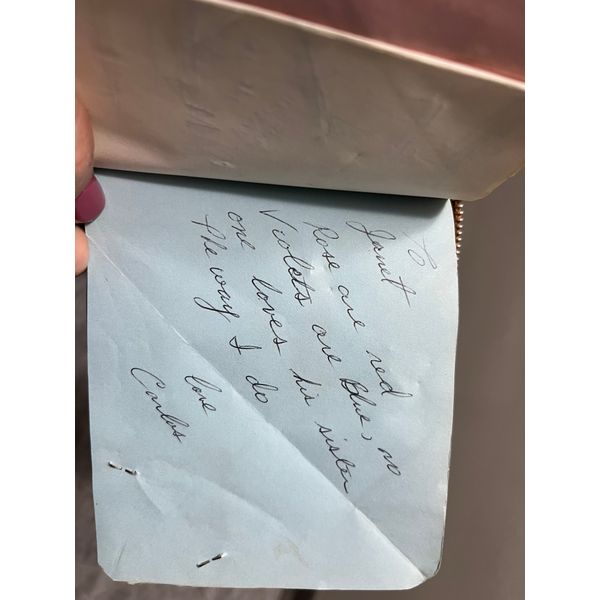 To
Janett
Rose are red
Violets are Blue, no
one loves his sister
the way I do
love
Carlus